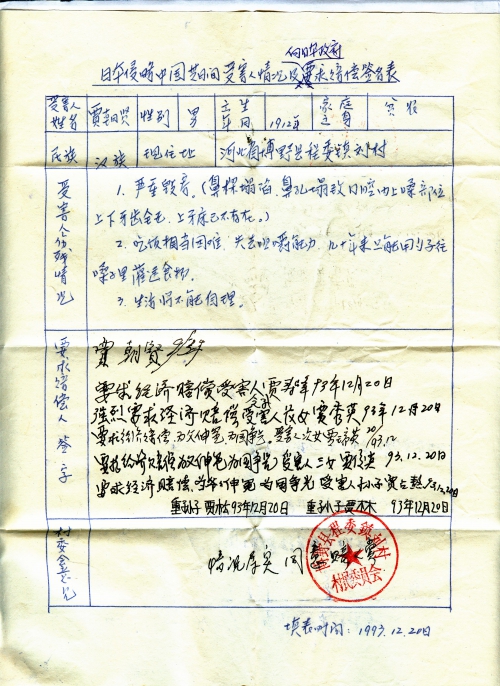 向日本政府
日本侵略中国其间受害人情况及要求赔偿签名表
受害人姓名 贾朝贤 性别 男 出生年月 1912年 家庭出身 贫农
民族 汉族 现住址 河北省博野县程委镇 村
受害人伤残情况
1. 严重毁容。(鼻梁塌陷、鼻孔塌致口腔内上嗓部位
上下牙齿全无,上牙床已不存在。)
2. 吃饭相当困难,失去咀嚼能力,几十年来只能用勺子往
嗓子里灌送食物。
3. 生活仍不能自理。
要求赔偿人签字
贾朝贤
要求经济赔偿受害人 93年12月20日
强烈要求经济赔偿受害人长女贾秀英 93年12月20日
要求经济赔偿 为父伸冤 为国争光 受害人次女贾 20/93.12
要求经济赔偿为父伸冤为国争光 受害人三女贾 93.12.20日
要求经济赔偿 为爷爷伸冤 为国争光 受害人 贾 93.12.20日
重孙子 贾松 93年12月20日 重孙子 贾木木 93年12月20日
村委会意见
情况属实 同意赔偿
博野县程委镇 村 村民委员会
填表时间:1993.12.20日